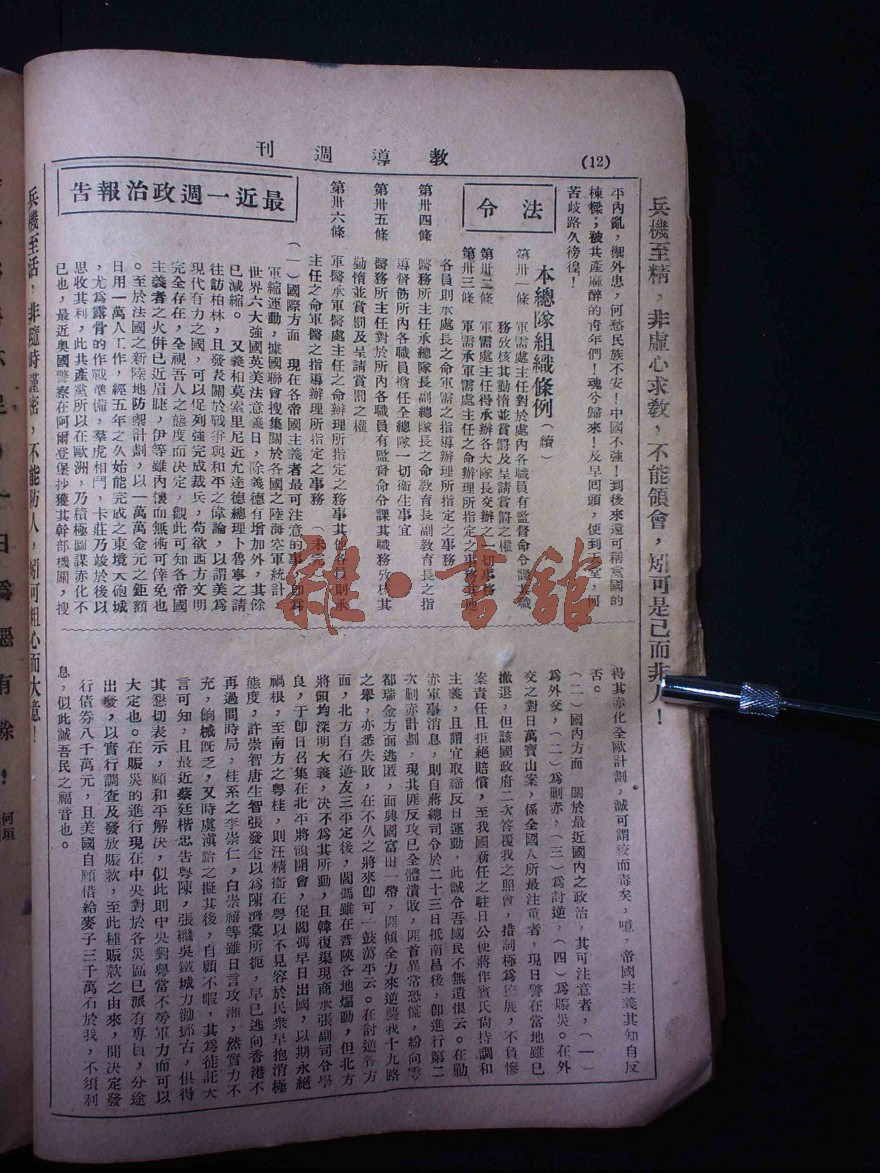 教導週刊
(12)
兵機至精，非虛心求教，不能領會，矧可是己而非人！
平內亂，禦外患，何愁民族不安！中國不強！到後來還可稱黨國的
棟樑；被共產麻醉的青年們！魂兮歸來！及早回頭，便到天堂，何
苦歧路久徬徨！
法令
本總隊組織條例（續）
第卅一條　軍需處主任對於處內各職員有監督命令課其職
務攷核其勤惰並賞罰及呈請賞罰之權
第卅二條　軍需處主任待承辦各大隊長交辦之一切事務
第卅三條　軍需承軍需處主任之命辦理所指定之事務其他
各員則承處長之命軍需之指導辦理所指定之事務
第卅四條　醫務所主任承總隊長副總隊長之命教育長副教育長之指
導督飭所內各職員擔任全總隊一切衛生事宜
第卅五條　醫務所主任對於所內各職員有監督命令課其職務攷核其
勤惰並賞罰及呈請賞罰之權
第卅六條　軍醫承軍醫處主任之命辦理所指定之務事其他各員則承
主任之命軍醫之指導辦理所指定之事務　（未完）
最近一週政治報告
（一）國際方面　現在各帝國主義者最可注意的事，即為
軍縮運動，據國聯會搜集關於各國之陸海空軍統計，
世界六大強國英美法意義日，除義德有增加外，其餘
已減縮。又義相莫索里尼近允達德總理卜魯寧之請
往訪柏林，且發表關於戰爭與和平之偉論，以謂美為
現代有力之國，可以促列強完成裁兵，苟欲西方文明
完全存在，全視吾人之態度而決定，觀此可知各帝國
主義者之火併已近眉睫，伊等雖內懷而無術可倖免也
。至於法國之新陸地防禦計劃，以一萬萬金元之鉅額
日用一萬人工作，經五年之久始能完成之東境大砲城
，尤為露骨的作戰準備，羣虎相鬥，卡莊乃竣於後以
思收其利，此共產黨所以在歐洲，乃積極圖謀赤化不
已也，最近奧國警察在阿爾登堡抄獲其幹部機關，搜
得其赤化全歐計劃，誠可謂狡而毒矣，噫，帝國主義其知自反
否。
（二）國內方面　關於最近國內之政治，其可注意者，（一）
為外交，（二）為剿赤，（三）為討逆，（四）為賑災。在外
交之對日萬寶山案，係全國人所最注重者，現日警在當地雖已
撤退，但該國政府二次答覆我之照會，措詞極為，不負慘
案責任且拒絕賠償，至我國新任之駐日公使蔣作賓氏尚持調和
主義，且謂宜取締反日運動，此誠令吾國民不無遺恨云。在勦
赤軍事消息，則自蔣總司令於二十三日抵南昌後，卽進行第二
次剿赤計劃，現其匪反攻已全體潰敗，匪首異常恐慌，紛向雩
都瑞金方面逃匿，而興國富田一帶，匪傾全力來逆襲我十九路
之舉，亦悉失敗，在不久之將來卽可一鼓蕩平云。在討逆各方
面，北方自石逆友三平定後，閻馮雖在晋陝各地煽動，但北方
將領均深明大義，決不為其所動，且韓復渠現商承張副司令學
良，于卽日召集在北平將領開會，促閻馮早日出國，以期永絕
禍根，至南方之粵桂，則汪精衛在粵以不見容於民衆早抱消極
態度，許崇智唐生智張發奎以為陳濟棠所扼，早已逃向香港不
再過問時局，桂系之李崇仁，白崇禧等雖日言攻湘，然實力不
充，餉械旣乏，又時虞滇黔之擬其後，自顧不暇，其為徒託大
言可知，且最近蔡廷楷忠告粵陳，張繼吳鐵城力泑鄧右，俱得
其懇切表示，願和平解決，似此則中央對粵當不勞軍力而可以
大定也。在賑災的進行現在中央對於各災區已派有專員，分途
出發，以實行調查及發放賑款，至此種賑款之由來，聞決定發
行債券八千萬元，且美國自願借給麥子三千萬石於我，不須利
息，似此誠吾民之福音也。
兵機至活，非隨時謹密，不能防人，矧可粗心而大意！
為惡有餘！
何垣